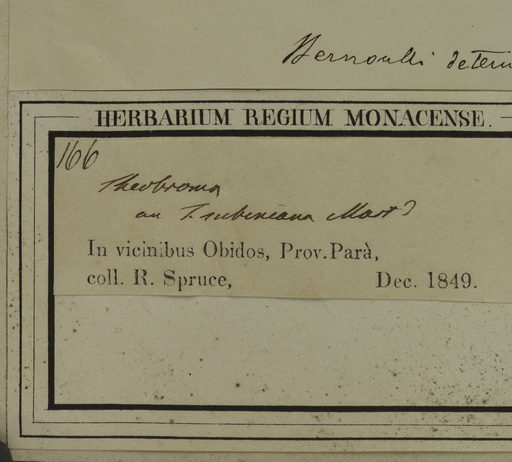 Bernoulli determ
HERBARIUM REGIUM MONACENSE.
166
Theobroma
an T. subincana Mart?
In vicinibus Obidos, Prov. Parà,
coll. R. Spruce, Dec. 1849.